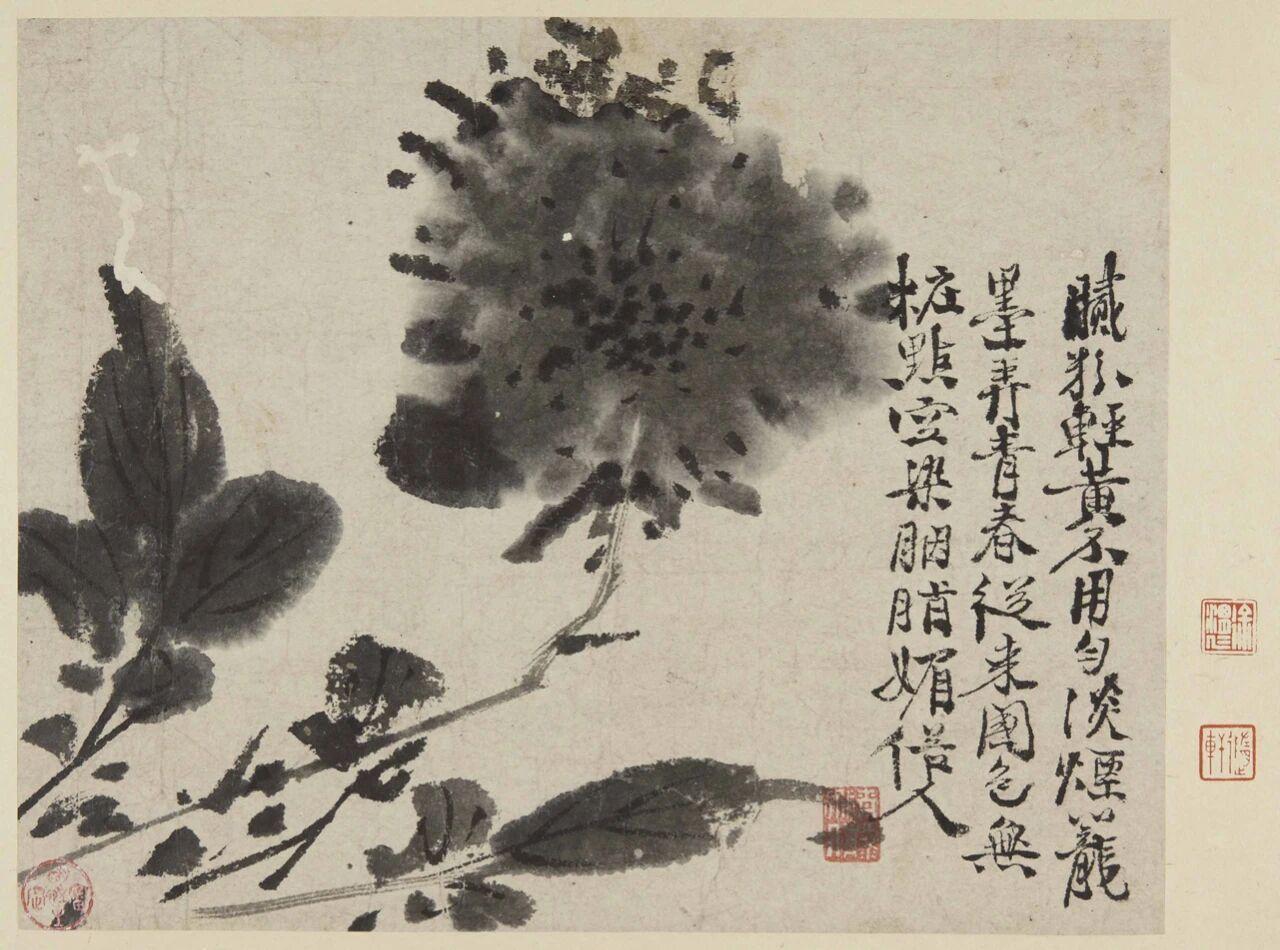 膩粉輕黃不用勻淡煙籠
墨弄青春從來國色無
粧點空染胭脂媚俗人